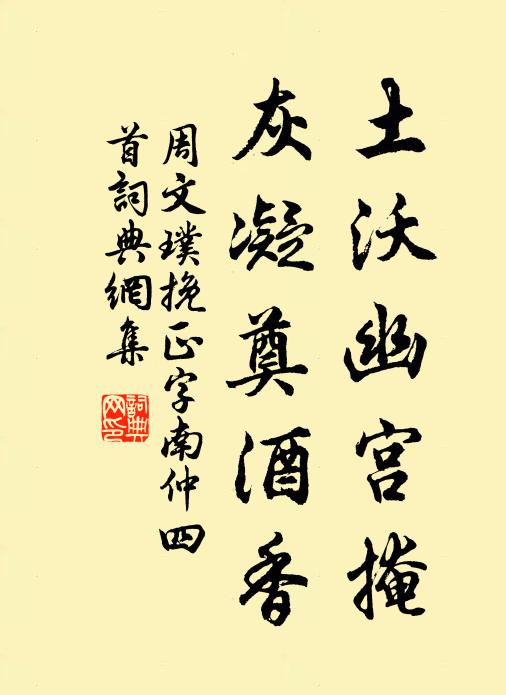 土沃幽宫掩
灰凝奠酒香
周文璞挽正字南仲四
首詞典網集
詞典
网印